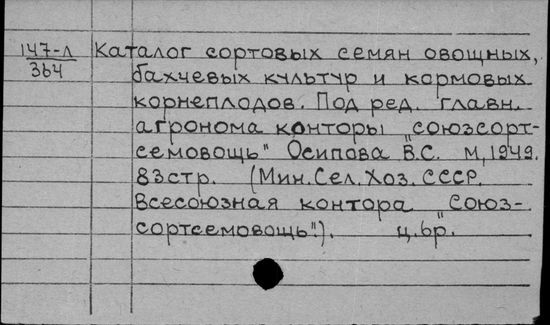 147-Л
364
Каталог сортовых семян овощных,
бахчевых культур и кормовых
корнеплодов. Под ред. главн.
агронома конторы „союзсорт-
семовощь" Осипова В.С. М, 1949.
83стр. (Мин. Сел. Хоз. СССР.
Всесоюзная контора „Союз-
сортсемовощь".). ц. 6р.